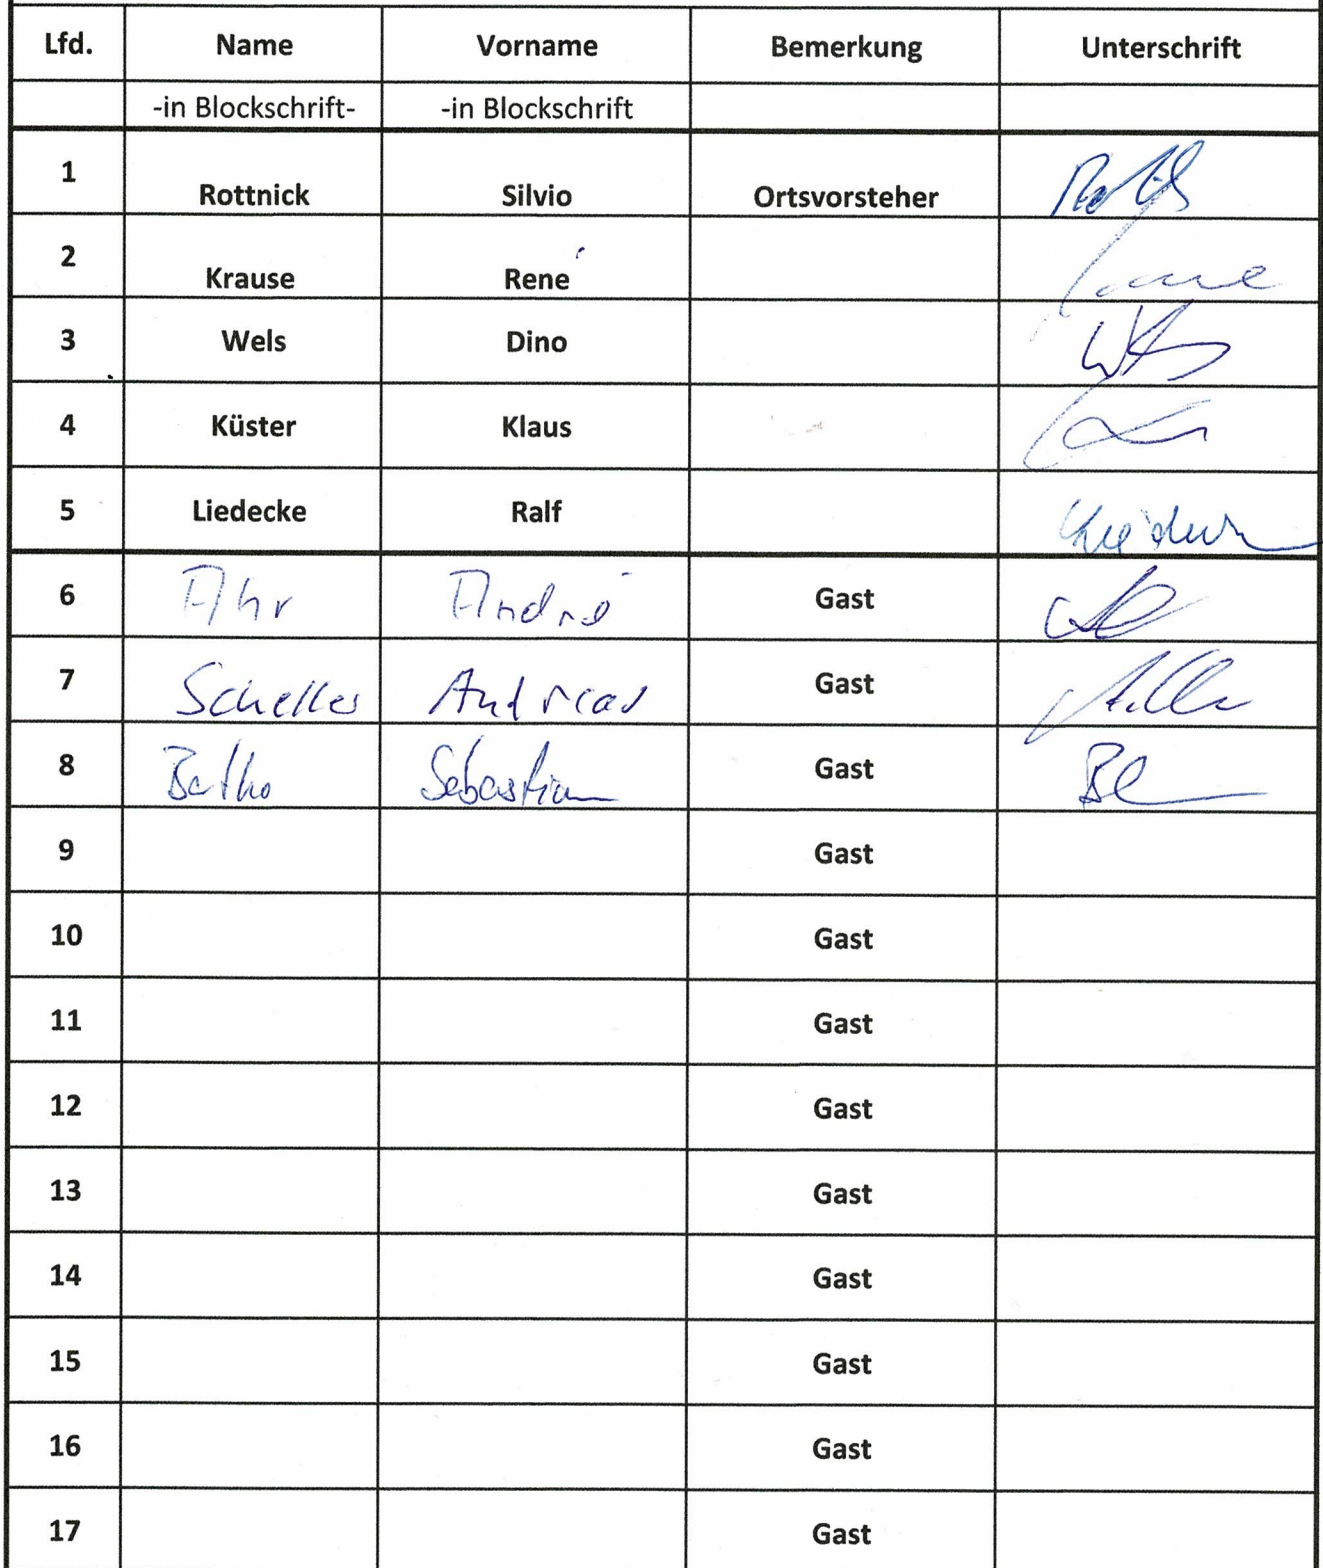 Lfd. Name Vorname Bemerkung Unterschrift
-in Blockschrift- -in Blockschrift
1 Rottnick Silvio Ortsvorsteher
2 Krause René
3 Wels Dino
4 Küster Klaus
5 Liedecke Ralf
6 Ahr André Gast
7 Scheller Andreas Gast
8 Sebastian Gast
9 Gast
10 Gast
11 Gast
12 Gast
13 Gast
14 Gast
15 Gast
16 Gast
17 Gast